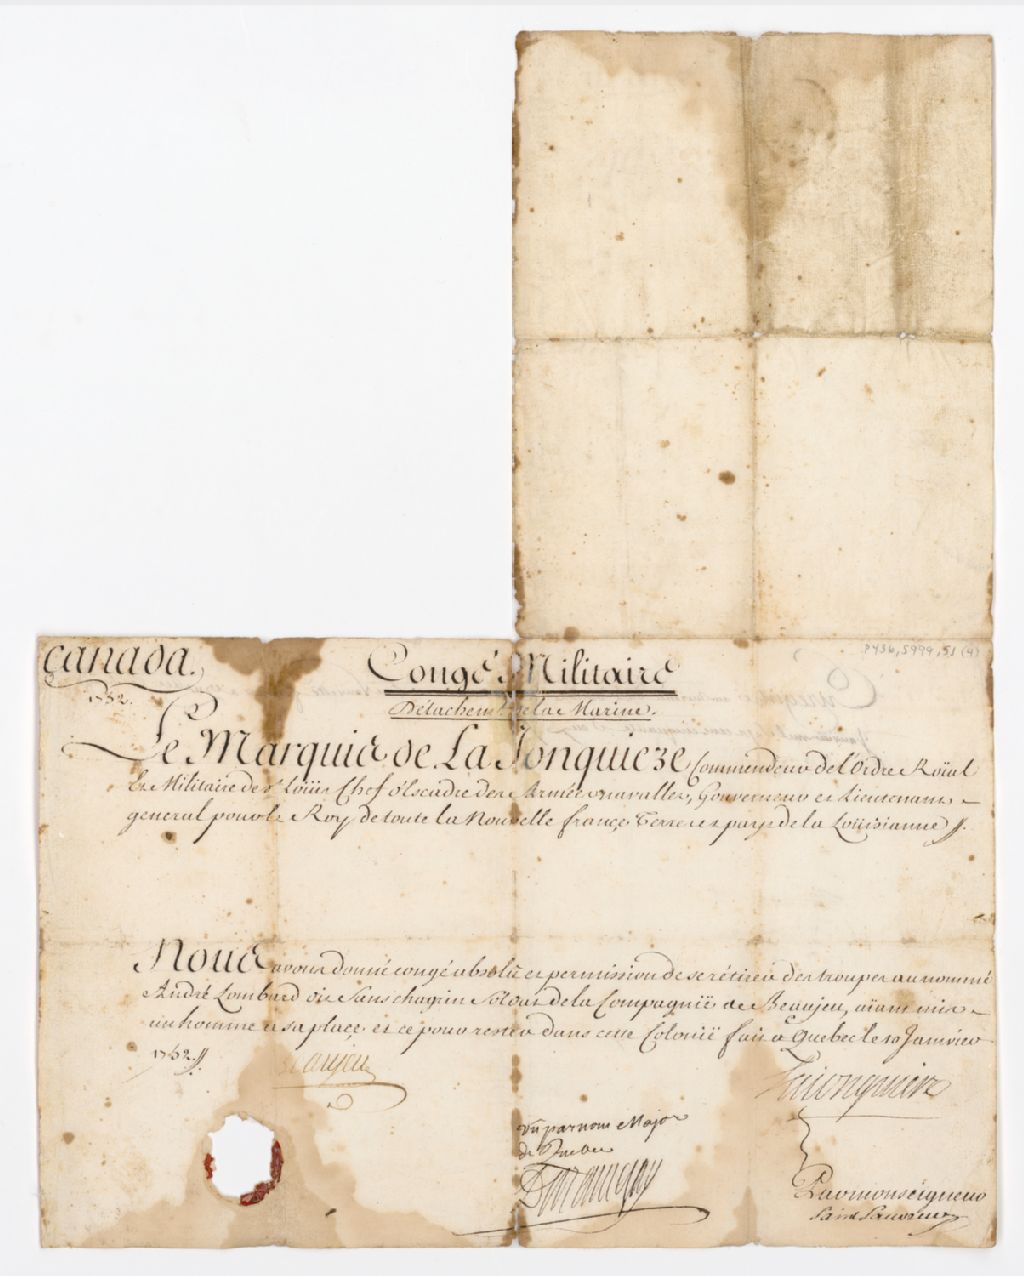 Canada
1752.
Congé Militaire
Détachemt de la Marine.
Le Marquis de La Jonquieze Commendeur de l'Ordre Roïal
Et Militaire de St Loüis Chef d'Escadre des Armées navalles, Gouverneur et Lieutenant
general pour le Roy de toute la Nouvelle france Terres et pays de la Loüisianne
Nous avons donné congé absolü et permission de se rétirer des troupes au nommé
André Lombard dit Sans chagrin Soldat de la Compagnie de Beaujeu, aiant mis
un homme a sa place, et ce pour rester dans cette Colonie fait a Quebec le 10 Janvier
1752.
Laionquiere
Vû par nous Major
de Quebec
Par monseigneur
P436,S999,S1 (4)